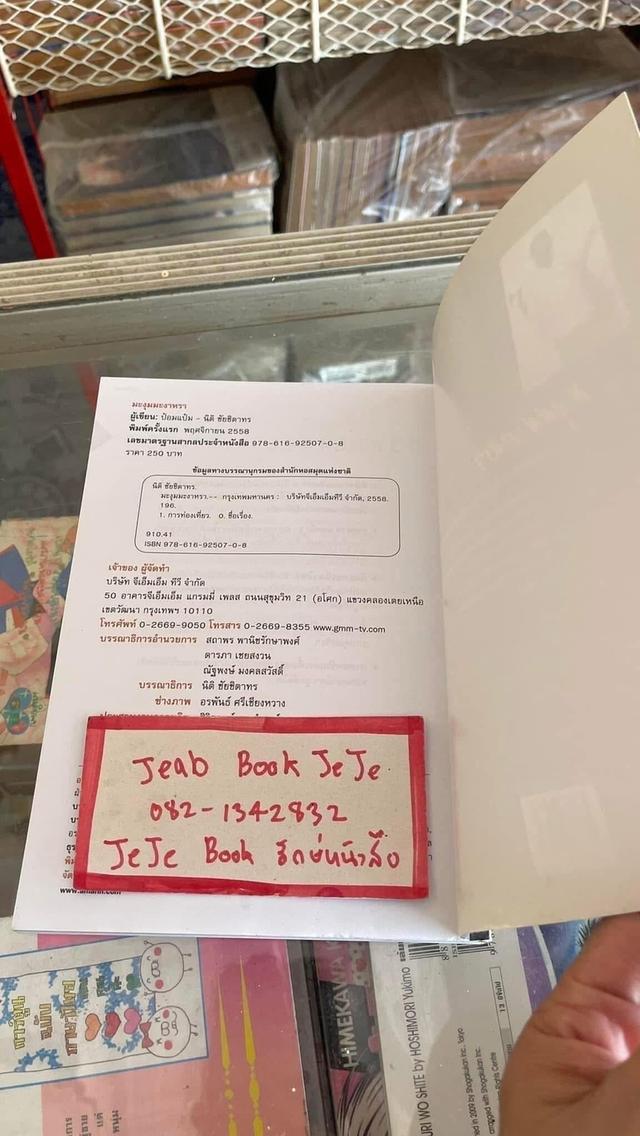 มะงุมมะงาหรา
ผู้เขียน: ป๋อมแป๋ม - นิติ ชัยชิตาทร
พิมพ์ครั้งแรก พฤศจิกายน 2558
เลขมาตรฐานสากลประจำหนังสือ 978-616-92507-0-8
ราคา 250 บาท
ข้อมูลทางบรรณานุกรมของสำนักหอสมุดแห่งชาติ
นิติ ชัยชิตาทร.
มะงุมมะงาหรา.-- กรุงเทพมหานคร : บริษัทจีเอ็มเอ็มทีวี จำกัด, 2558.
196.
1. การท่องเที่ยว. ๐. ชื่อเรื่อง.
910.41
ISBN 978-616-92507-0-8
เจ้าของ ผู้จัดทำ
บริษัท จีเอ็มเอ็ม ทีวี จำกัด
50 อาคารจีเอ็มเอ็ม แกรมมี่ เพลส ถนนสุขุมวิท 21 (อโศก) แขวงคลองเตยเหนือ
เขตวัฒนา กรุงเทพฯ 10110
โทรศัพท์ 0-2669-9050 โทรสาร 0-2669-8355 www.gmm-tv.com
บรรณาธิการอำนวยการ สถาพร พานิชรักษาพงศ์
ดารภา เชยสงวน
ณัฐพงษ์ มงคลสวัสดิ์
บรรณาธิการ นิติ ชัยชิตาทร
ช่างภาพ อรพันธ์ ศรีเชียงหวาง
Jeab Book JeJe
082-1342832
JeJe Book
HIMEKAWA
URI WO SHITE by HOSHIMORI Yukimo